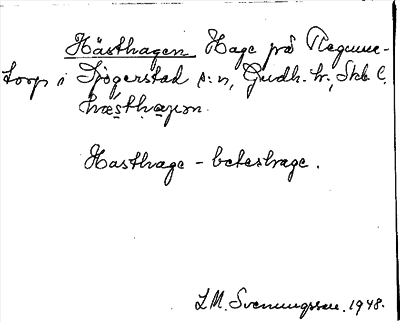 Hästhagen Hage på Regume-
torp i Sjogerstad s:n, Gudh. hr, Skb. l.
hæsthaɡɐn.
Hasthage - beteshage.
L.M. Svenungsson. 1948.